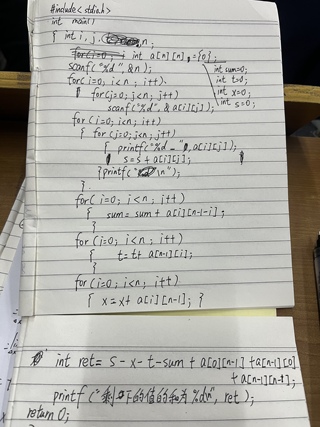 #include<stdio.h>
int main()
{ int i, j, n;
int a[n][n] = {0};
scanf("%d", &n);
int sum=0;
int t=0;
int x=0;
int s=0;
for(i=0; i<n; i++)
for(j=0; j<n; j++)
scanf("%d", &a[i][j]);
for(i=0; i<n; i++)
{ for(j=0; j<n; j++)
{ printf("%d_", a[i][j]);
s=s+a[i][j];
}printf("\n");
}
for(i=0; i<n; i++)
{ sum=sum+a[i][n-1-i];
}
for(i=0; i<n; i++)
{ t=t+a[n-1][i];
}
for(i=0; i<n; i++)
{ x=x+a[i][n-1]; }
int ret= s-x-t-sum+a[0][n-1]+a[n-1][0]
+a[n-1][n-1];
printf("剩下的值的和为%d\n", ret);
return 0;